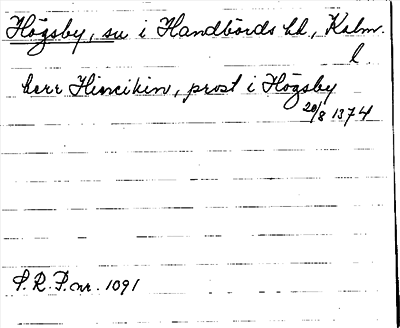 Högsby, su i Handbörds hd, Kalm.
l
herr Hinrikin, prost i Högsby
20/8 1374
S.R.P. nr. 1091